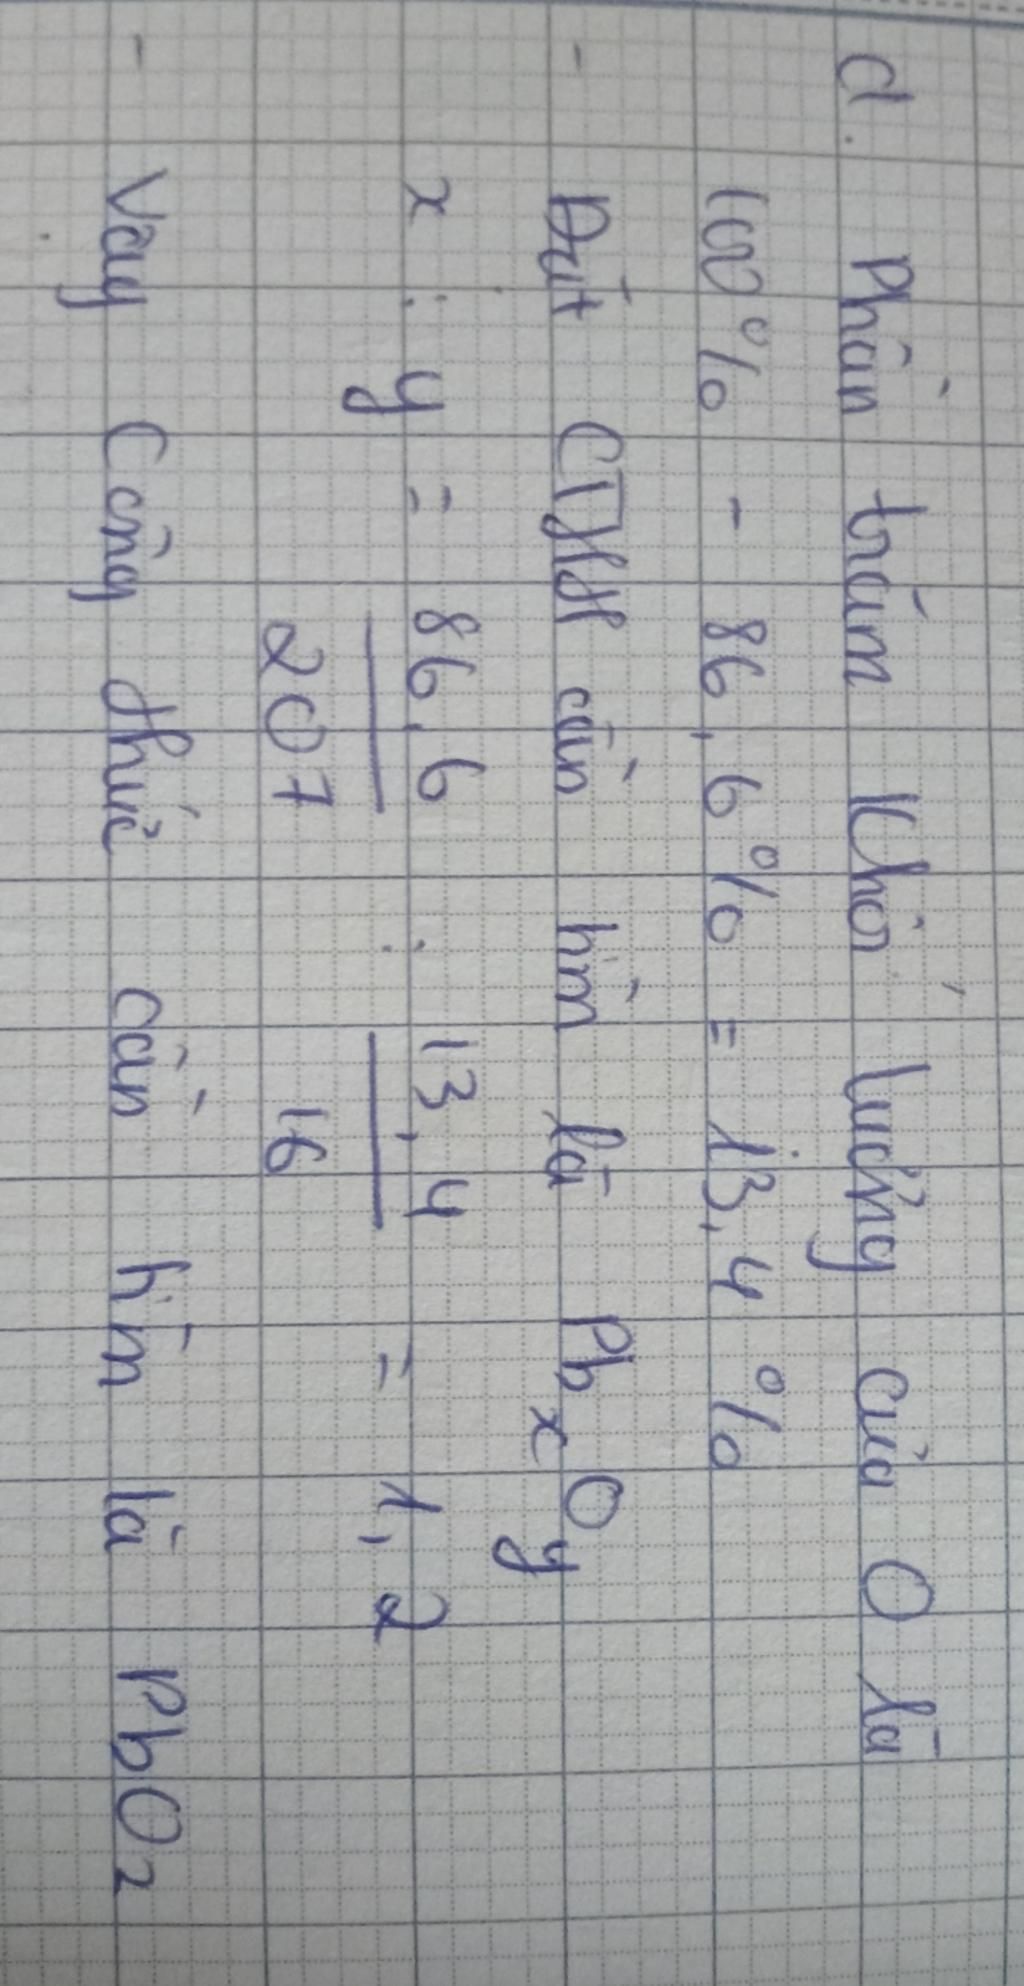 d. Phần trăm khối lượng của O là
100% - 86,6% = 13,4%
- Đặt CTHH cần tìm là PbxOy
x : y = 86,6/207 : 13,4/16 = 1,2
- Vậy Công thức cần tìm là PbO2